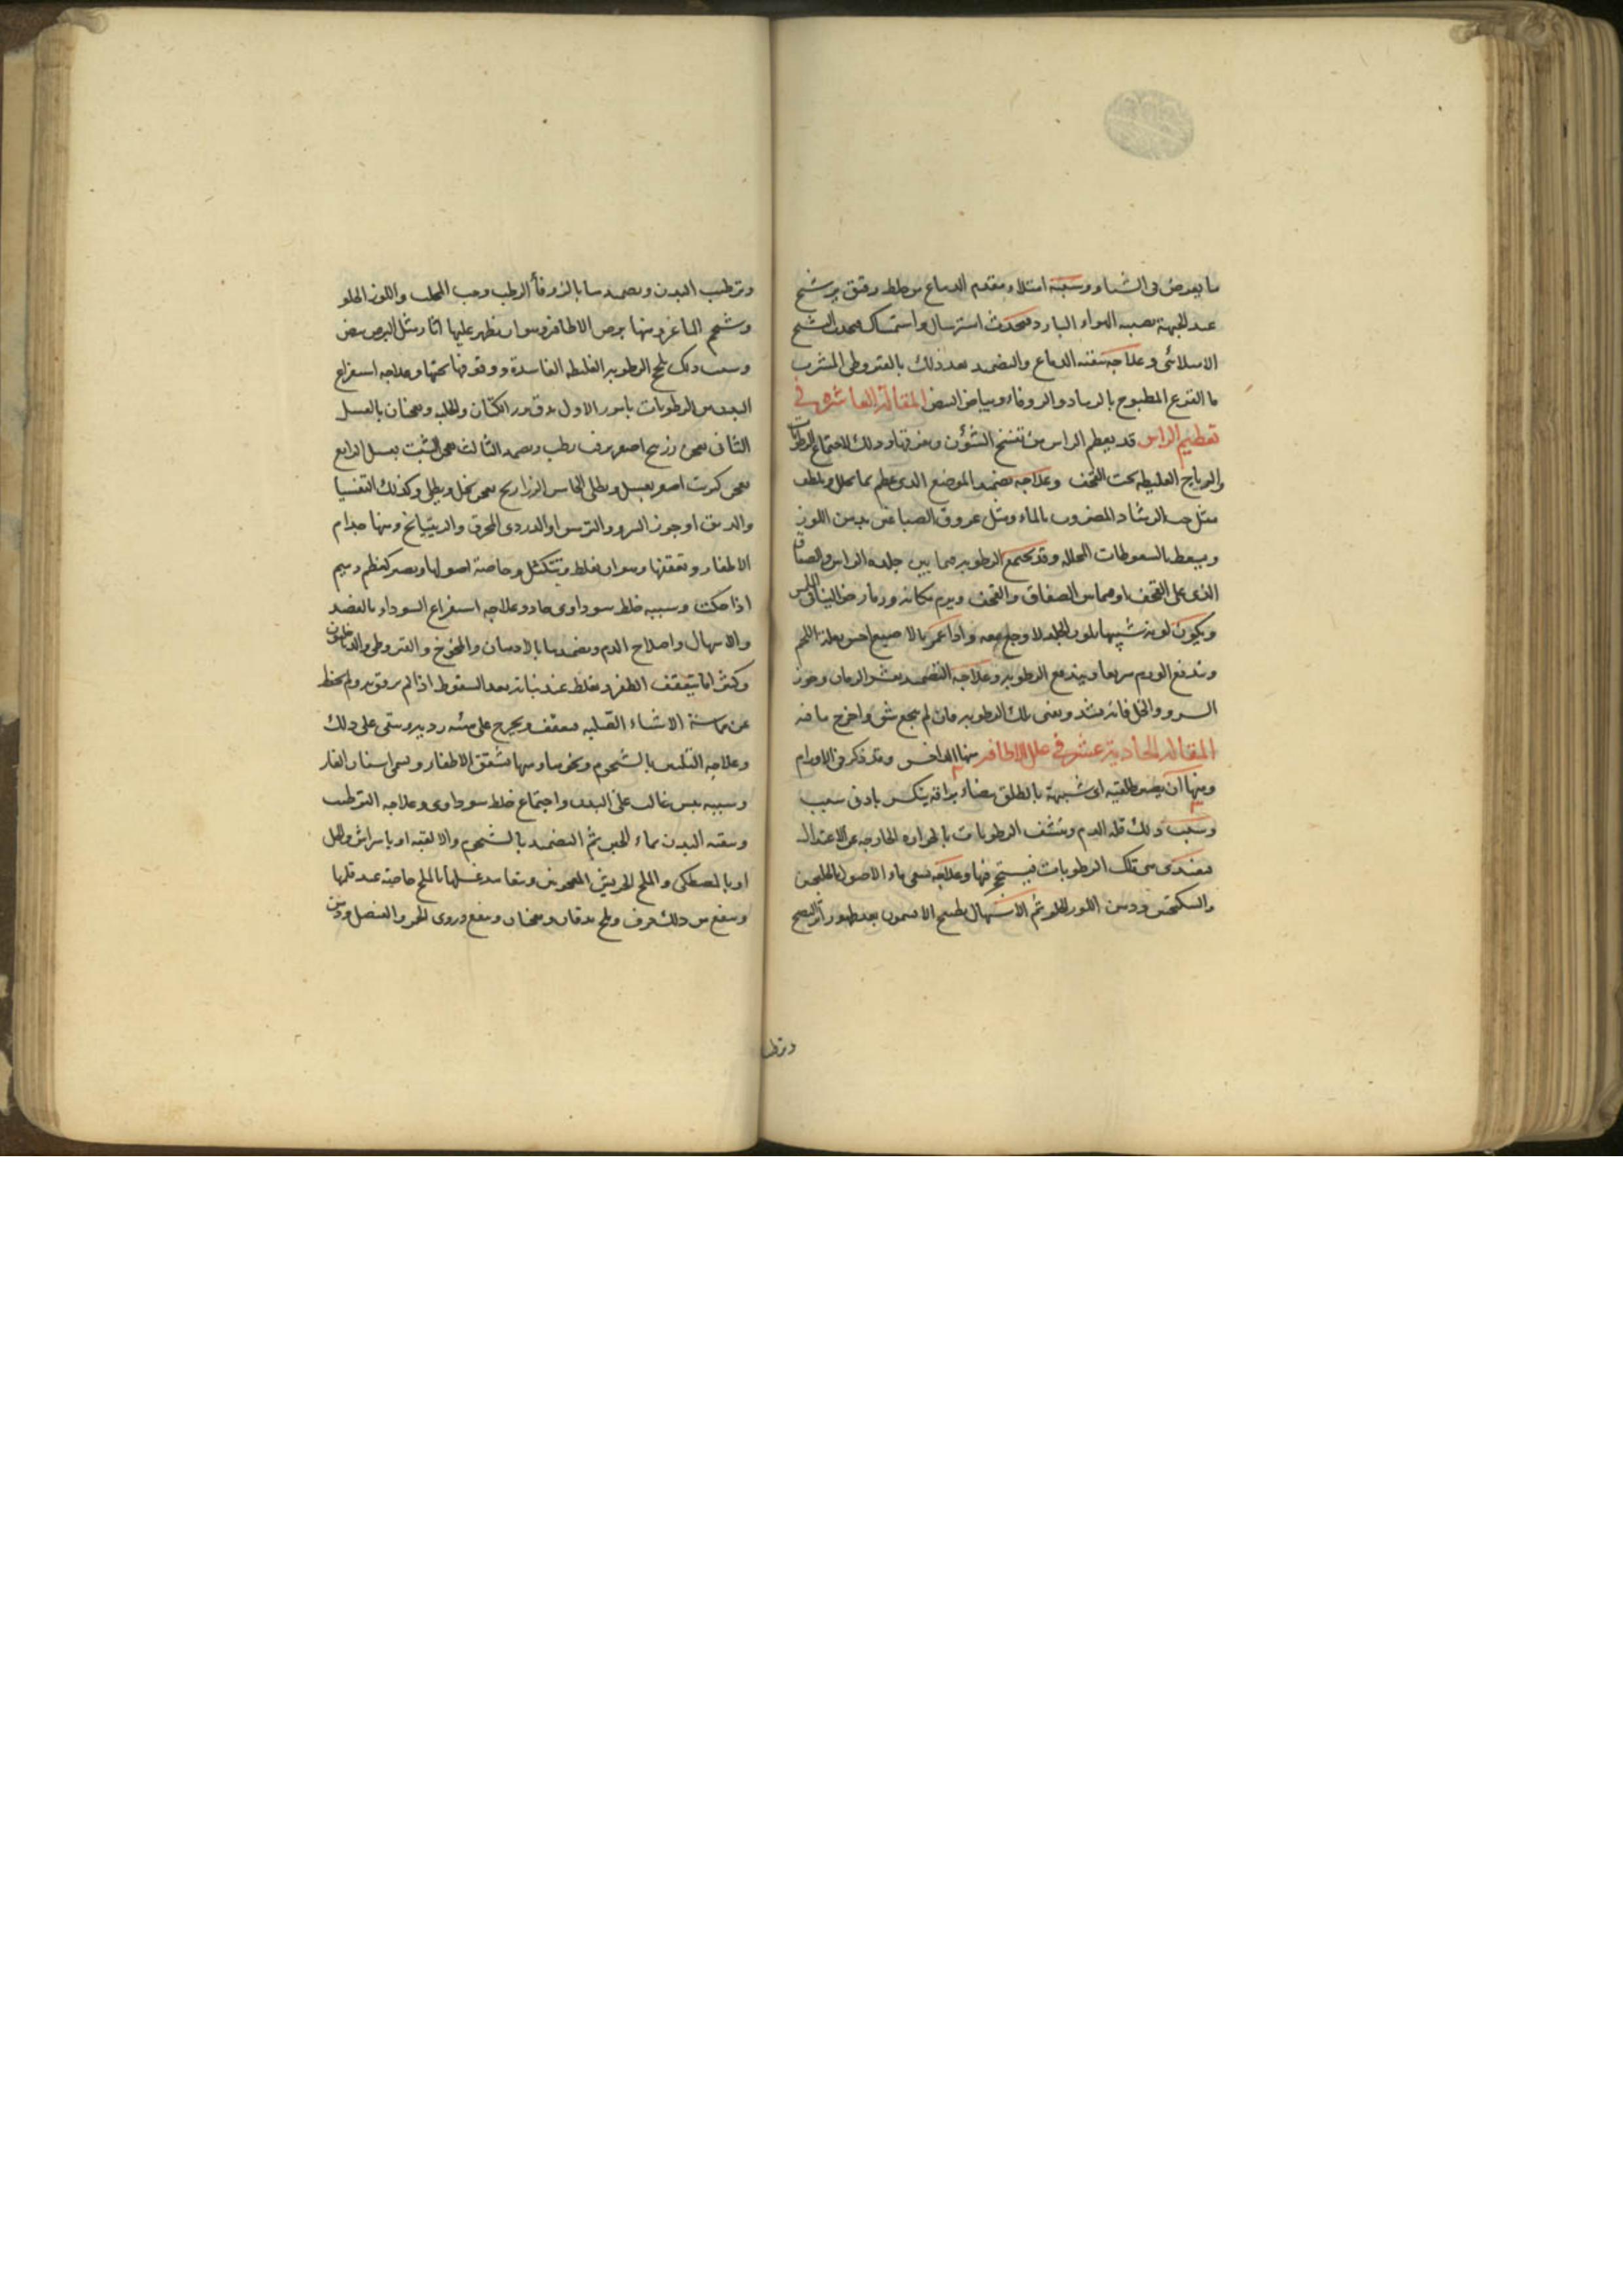 ما يعرض فى الشتاء وسببه امتلاء مقدم الدماغ من خلط رقيق يرشح
عند الجبهة يصيبه الهواء البارد فيحدث استرسال واستمساك فيحدث التشنج
الامتلائى وعلاجه تنقية الدماغ والتضميد بعد ذلك بالقيروطى المشرب
ماء القرع المطبوخ بالرماد والزوفاء وبياض البيض المقالة العاشرة فى
تعظيم الراس قد يعظم الراس من تفسخ الشؤن وتفرقها وذلك لاجتماع الرطوبات
والرياح الغليظة تحت القحف وعلاجه تضميد الموضع الذى عظم بما يحلل ويلطف
مثل حب الرشاد المضروب بالماء ومثل عروق الصباغين بدهن اللوز
ويسعط بالسعوطات المحللة وقد تجتمع الرطوبة فيما بين جلدة الراس والصفاق
الذى على القحف او فيما بين الصفاق والقحف ويرم مكانه ورما رخوا لين اللمس
ويكون لونه شبيها بلون الجلد لا وجع معه واذا غمز بالاصبع احس بغلة اللحم
ويندفع الورم سريعا ويندفع الرطوبة وعلاجه التضميد بقشر الرمان وجوز
السرو والخل فانه يشد ويفنى تلك الرطوبة فان لم ينجع شق واخرج ما فيه
المقالة الحادية عشر فى علل الاظافير منها الداخس وقد ذكر فى الاورام
ومنها ان يصير طلقية اى شبيهة بالطلق بيضاء براقة ينكسر بادنى سبب
وسبب ذلك قلة الدم ونشف الرطوبات بالحرارة الخارجة عن الاعتدال
فيغتذى من تلك الرطوبات وعلاجه سقى ماء الاصول بالجلنجبين
والسكنجبين ودهن اللوز الحلو ثم الاسهال بطبيخ الافتيمون بعد ظهور اثر النضج
وترطيب
وترطيب البدن وتضميدها بالزوفا الرطب وحب المحلب واللوز الحلو
وشحم الماعز ومنها برص الاظافير وهو ان يظهر عليها اثار مثل البرص بيض
وسبب ذلك تلحج الرطوبة الغليظة الفاسدة ووقوفها تحتها وعلاجه استفراغ
البدن من الرطوبات بامور الاول يدق بزر الكتان والحلبة ويعجنان بالعسل
الثانى يعجن زرنيخ اصفر بزفت رطب ويضمد الثالث يعجن الشبت بعسل الرابع
يعجن كبريت اصفر بعسل ويطلى الخامس الزراريح يعجن بخل ويطلى وكذلك التفسيا
والدبق او جوز السرو والترمس او الدردى المحرق والريتيانج ومنها جذام
الاظفار وتعقفها وهو ان يغلظ ويتكتل وخاصة اصولها ويصير كعظم رميم
اذا حكت وسببه خلط سوداوى حاد وعلاجه استفراغ السوداء بالفصد
والاسهال واصلاح الدم وتضميدها بالادهان والمخوخ والقيروطى والدياخيلون
وكثيرا ما يتعقف الظفر ويغلظ عند نباته بعد السقوط اذا لم يرفق به ولم يحفظ
عن مماسة الاشياء الصلبة فيعقف ويخرج على هيئة ردية ويبقى على ذلك
وعلاجه التليين بالشحوم ونحوها ومنها تشقق الاظفار ويسمى اسنان الفار
وسببه يبس غالب على البدن واجتماع خلط سوداوى وعلاجه الترطيب
وتنقية البدن بماء الجبن ثم التضميد بالشحوم والالعبة او باسراش والخل
او بالمصطكى والملح الجريش المعجونين وتعاهد غسلها بالملح خاصة عند قلمها
وينفع من ذلك حرف وملح يدقان ويعجنان وينفع دردى الخمر والعنصل ودهن